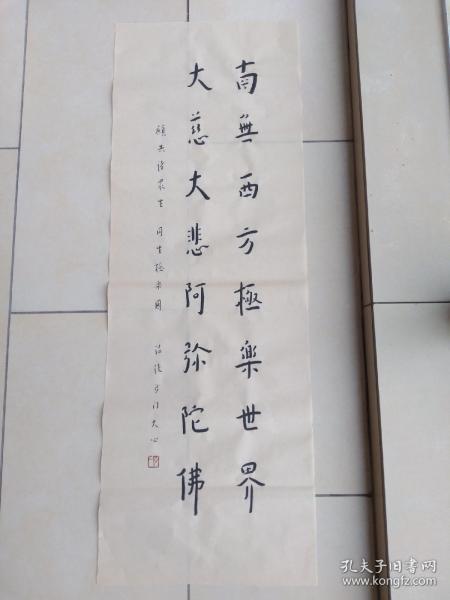 南無西方極楽世界
大慈大悲阿弥陀佛
願共諸眾生 同生極楽國
孔夫子旧书网
www.kongfz.com